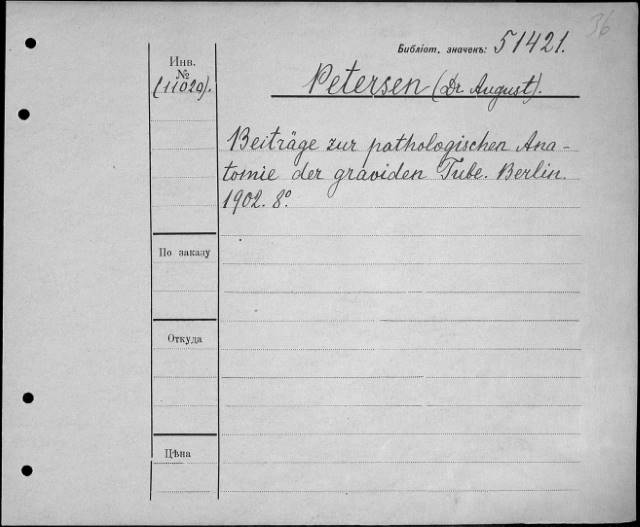 36
Библіот. значекъ: 51421.
Инв.
№
(11029).
Petersen (Dr. August).
Beiträge zur pathologischen Ana-
tomie der graviden Tube. Berlin.
1902. 8°.
По заказу
Откуда
Цѣна